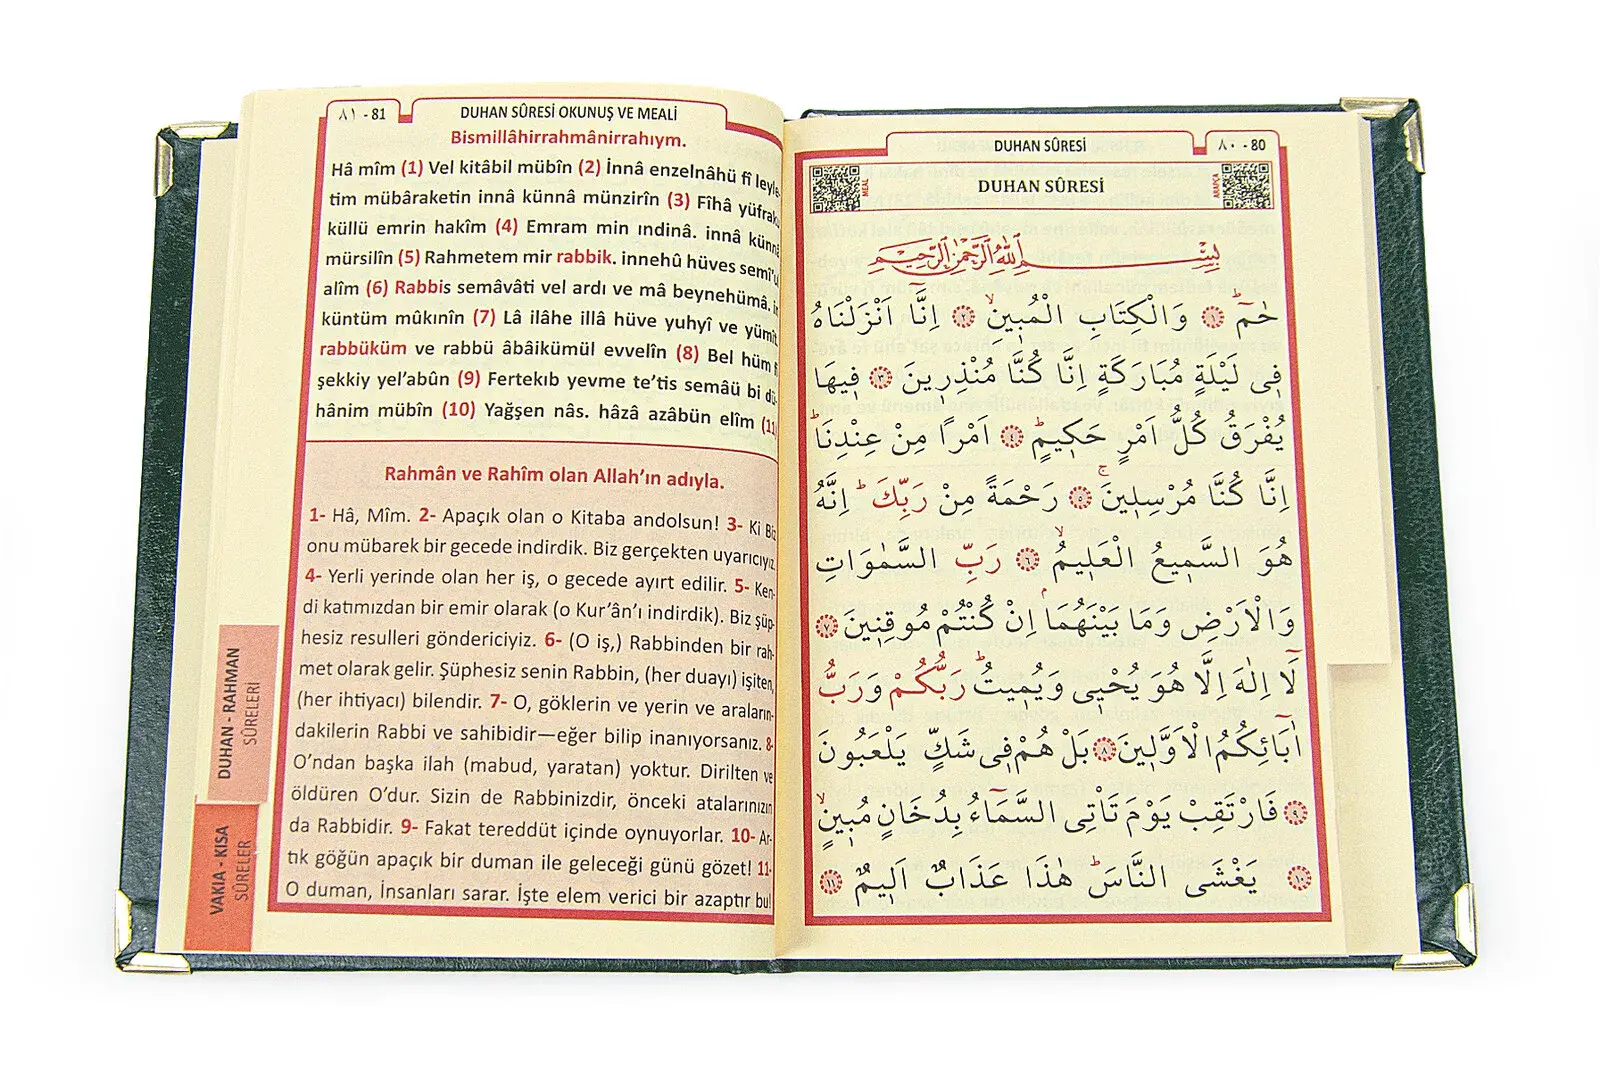 DUHAN SÛRESİ
٨٠ - 80
MEAL
DUHAN SÛRESİ
ARAPÇA
بِسْمِ اللّٰهِ الرَّحْمٰنِ الرَّحِيمِ
حٰمٓ ۜ ﴿١﴾ وَالْكِتَابِ الْمُبِينِ ۙ ﴿٢﴾ اِنَّٓا اَنْزَلْنَاهُ
فِي لَيْلَةٍ مُبَارَكَةٍ اِنَّا كُنَّا مُنْذِرِينَ ﴿٣﴾ فِيهَا
يُفْرَقُ كُلُّ اَمْرٍ حَكِيمٍ ۜ ﴿٤﴾ اَمْرًا مِنْ عِنْدِنَا ۜ
اِنَّا كُنَّا مُرْسِلِينَ ۚ ﴿٥﴾ رَحْمَةً مِنْ رَبِّكَ ۜ اِنَّهُ
هُوَ السَّمِيعُ الْعَلِيمُ ۙ ﴿٦﴾ رَبِّ السَّمٰوَاتِ
وَالْاَرْضِ وَمَا بَيْنَهُمَا ۢ اِنْ كُنْتُمْ مُوقِنِينَ ﴿٧﴾
لَٓا اِلٰهَ اِلَّا هُوَ يُحْيِي وَيُمِيتُ ۜ رَبُّكُمْ وَرَبُّ
اٰبَٓائِكُمُ الْاَوَّلِينَ ﴿٨﴾ بَلْ هُمْ فِي شَكٍّ يَلْعَبُونَ
﴿٩﴾ فَارْتَقِبْ يَوْمَ تَأْتِي السَّمَٓاءُ بِدُخَانٍ مُبِينٍ ۙ
﴿١٠﴾ يَغْشَى النَّاسَ ۜ هٰذَا عَذَابٌ اَلِيمٌ ﴿١١﴾
٨١ - 81
DUHAN SÛRESİ OKUNUŞ VE MEALİ
Bismillâhirrahmânirrahıym.
Hâ mîm (1) Vel kitâbil mübîn (2) İnnâ enzelnâhü fî leyle-
tim mübâraketin innâ künnâ münzirîn (3) Fîhâ yüfraku
küllü emrin hakîm (4) Emram min ındinâ. innâ künnâ
mürsilîn (5) Rahmetem mir rabbik. innehû hüves semî'u
alîm (6) Rabbis semâvâti vel ardı ve mâ beynehümâ. in
küntüm mûkınîn (7) Lâ ilâhe illâ hüve yuhyî ve yümît.
rabbüküm ve rabbü âbâikümül evvelîn (8) Bel hüm f
şekkiy yel'abûn (9) Fertekıb yevme te'tis semâü bi dü-
hânim mübîn (10) Yağşen nâs. hâzâ azâbün elîm (11)
Rahmân ve Rahîm olan Allah'ın adıyla.
1- Hâ, Mîm. 2- Apaçık olan o Kitaba andolsun! 3- Ki Biz
onu mübarek bir gecede indirdik. Biz gerçekten uyarıcıyız.
4- Yerli yerinde olan her iş, o gecede ayırt edilir. 5- Ken-
di katımızdan bir emir olarak (o Kur'ân'ı indirdik). Biz şüp-
hesiz resulleri göndericiyiz. 6- (O iş,) Rabbinden bir rah-
met olarak gelir. Şüphesiz senin Rabbin, (her duayı) işiten,
(her ihtiyacı) bilendir. 7- O, göklerin ve yerin ve araların-
dakilerin Rabbi ve sahibidir—eğer bilip inanıyorsanız. 8-
O'ndan başka ilah (mabud, yaratan) yoktur. Dirilten ve
öldüren O'dur. Sizin de Rabbinizdir, önceki atalarınızın
da Rabbidir. 9- Fakat tereddüt içinde oynuyorlar. 10- Ar-
tık göğün apaçık bir duman ile geleceği günü gözet! 11-
O duman, İnsanları sarar. İşte elem verici bir azaptır bu!
DUHAN - RAHMAN
SÛRELERİ
VAKIA - KISA
SÛRELER